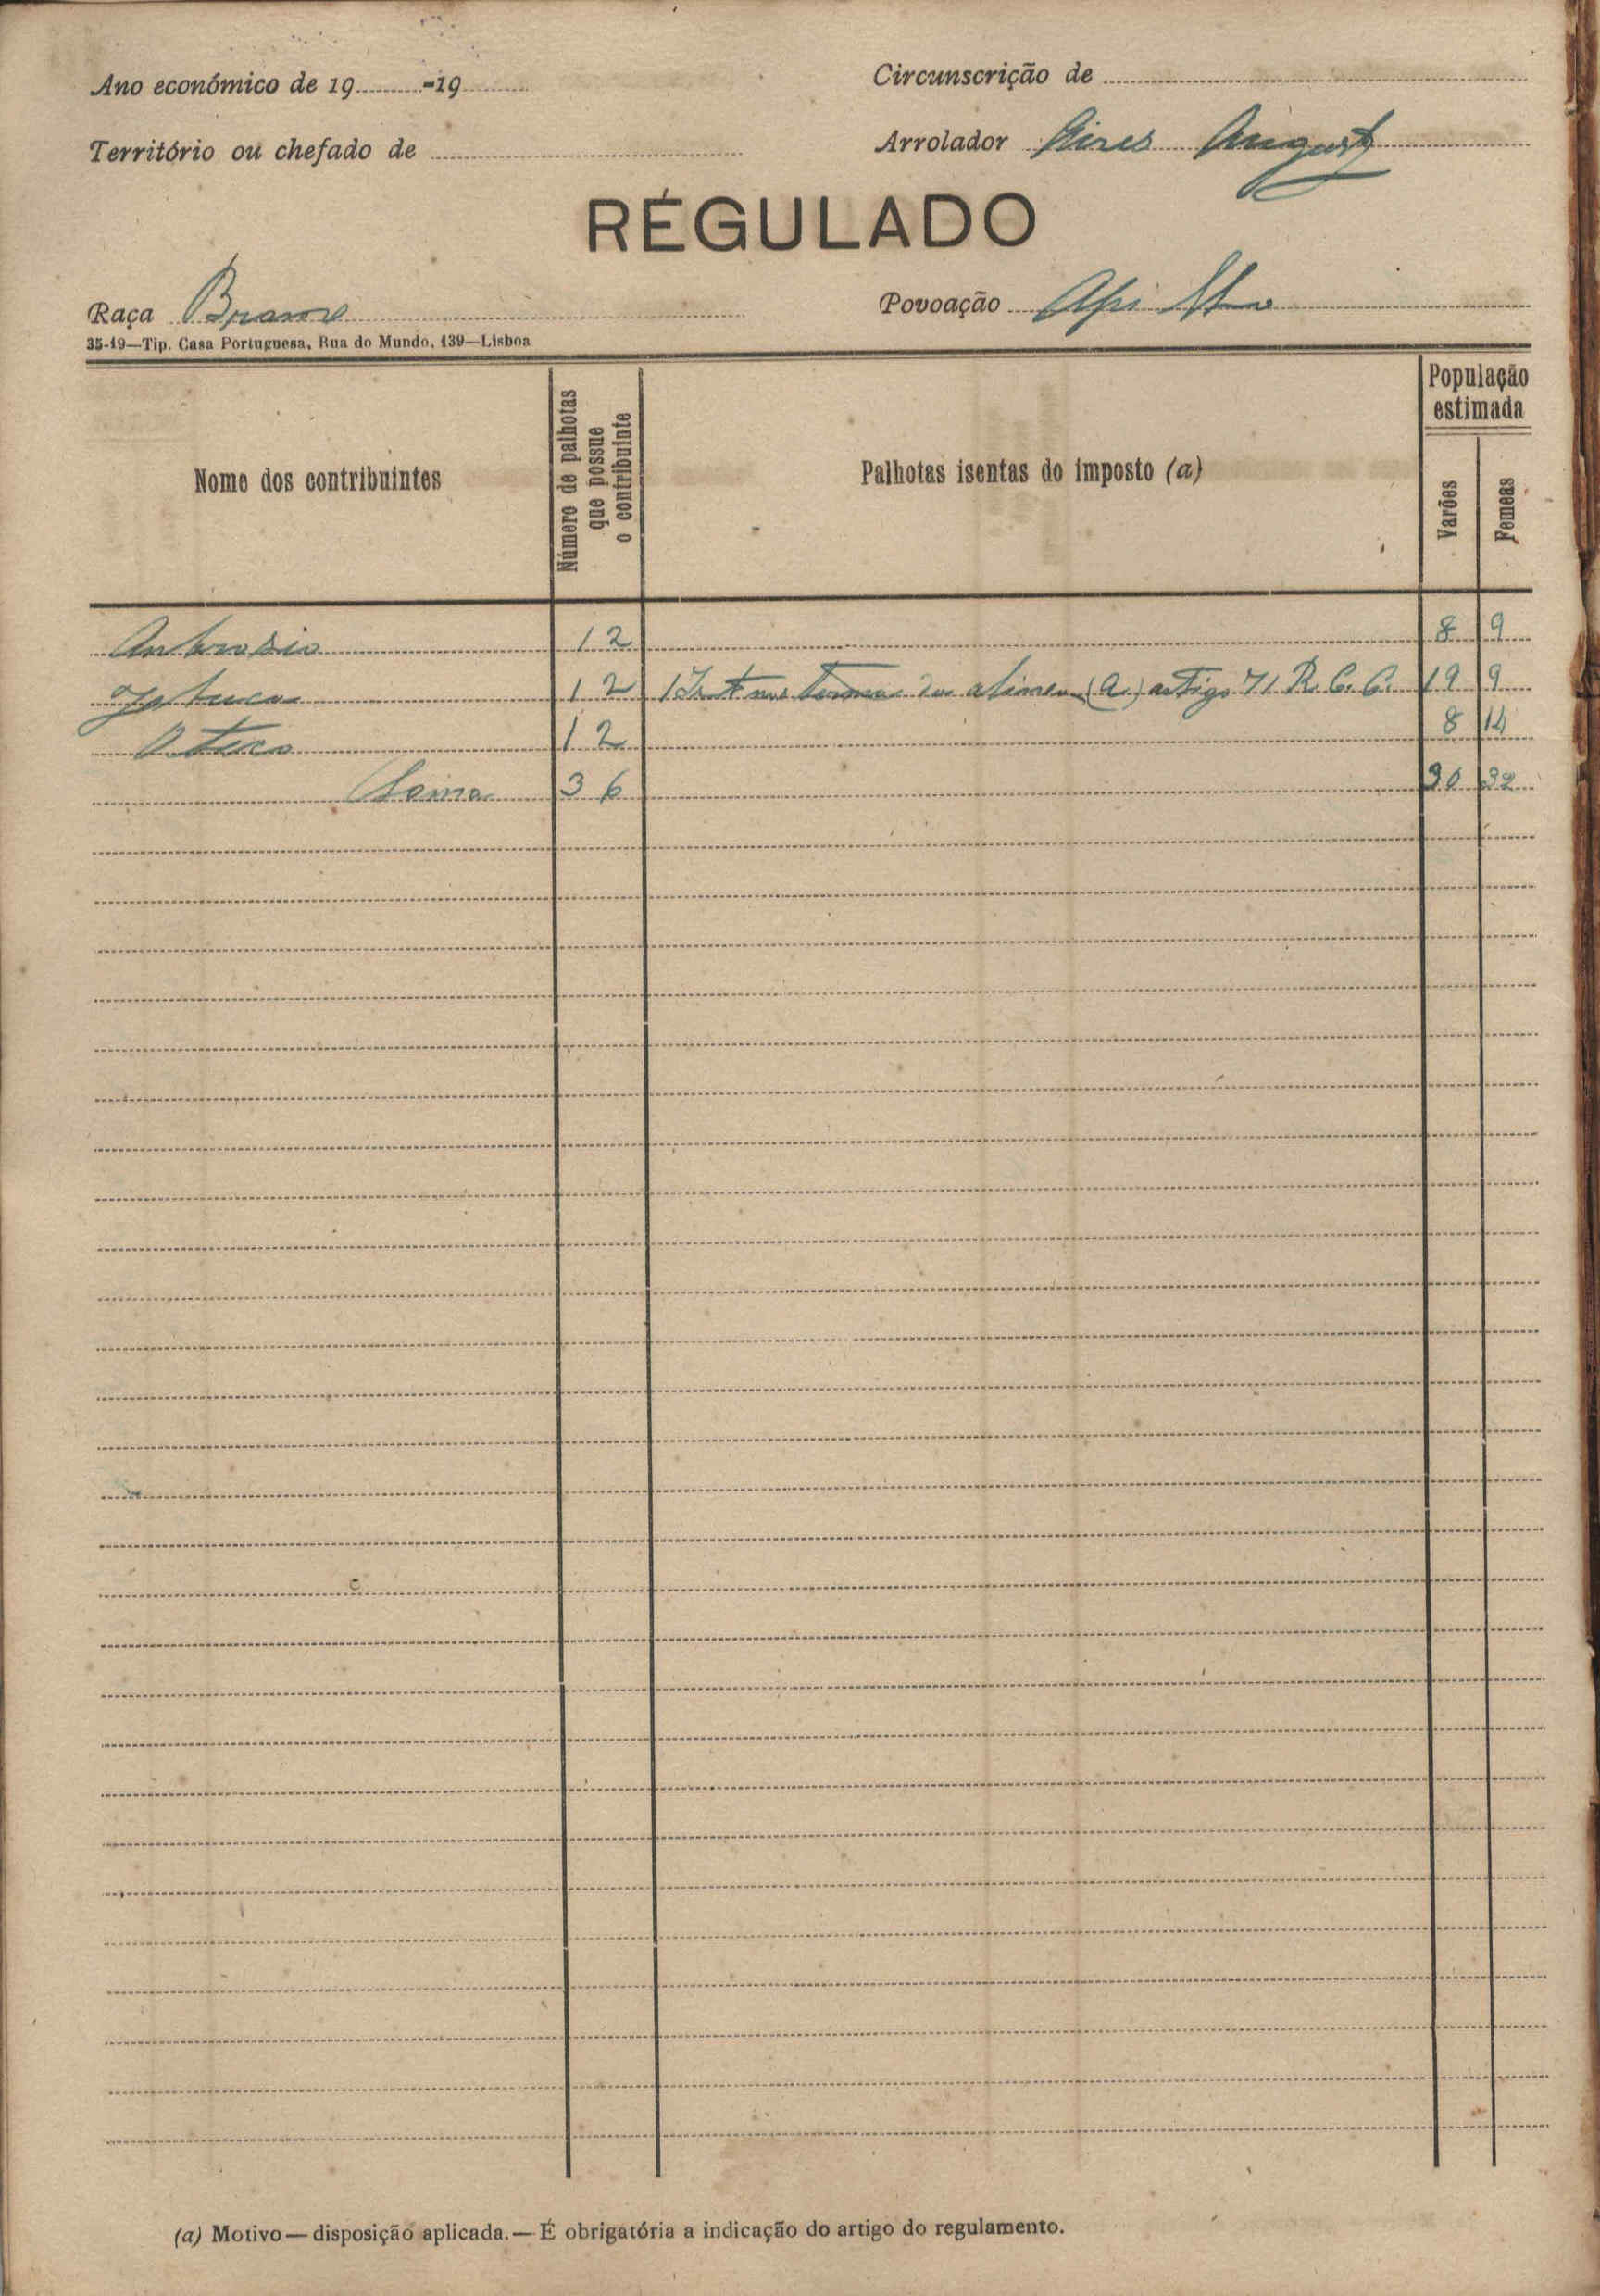 Ano económico de 19 -19
Circunscrição de
Território ou chefado de
Arrolador Aires Augusto
RÉGULADO
Raça Brame
Povoação
35-19—Tip. Casa Portuguesa, Rua do Mundo, 139—Lisboa
Nome dos contribuintes
Número de palhotas que possue o contribuinte
Palhotas isentas do imposto (a)
População estimada
Varões
Femeas
Ambrosio 12 8 9
12 1 nos termos da alinea (a) artigo 71 R. C. C. 19 9
12 8 14
Soma 36 30 32
(a) Motivo — disposição aplicada. — É obrigatória a indicação do artigo do regulamento.